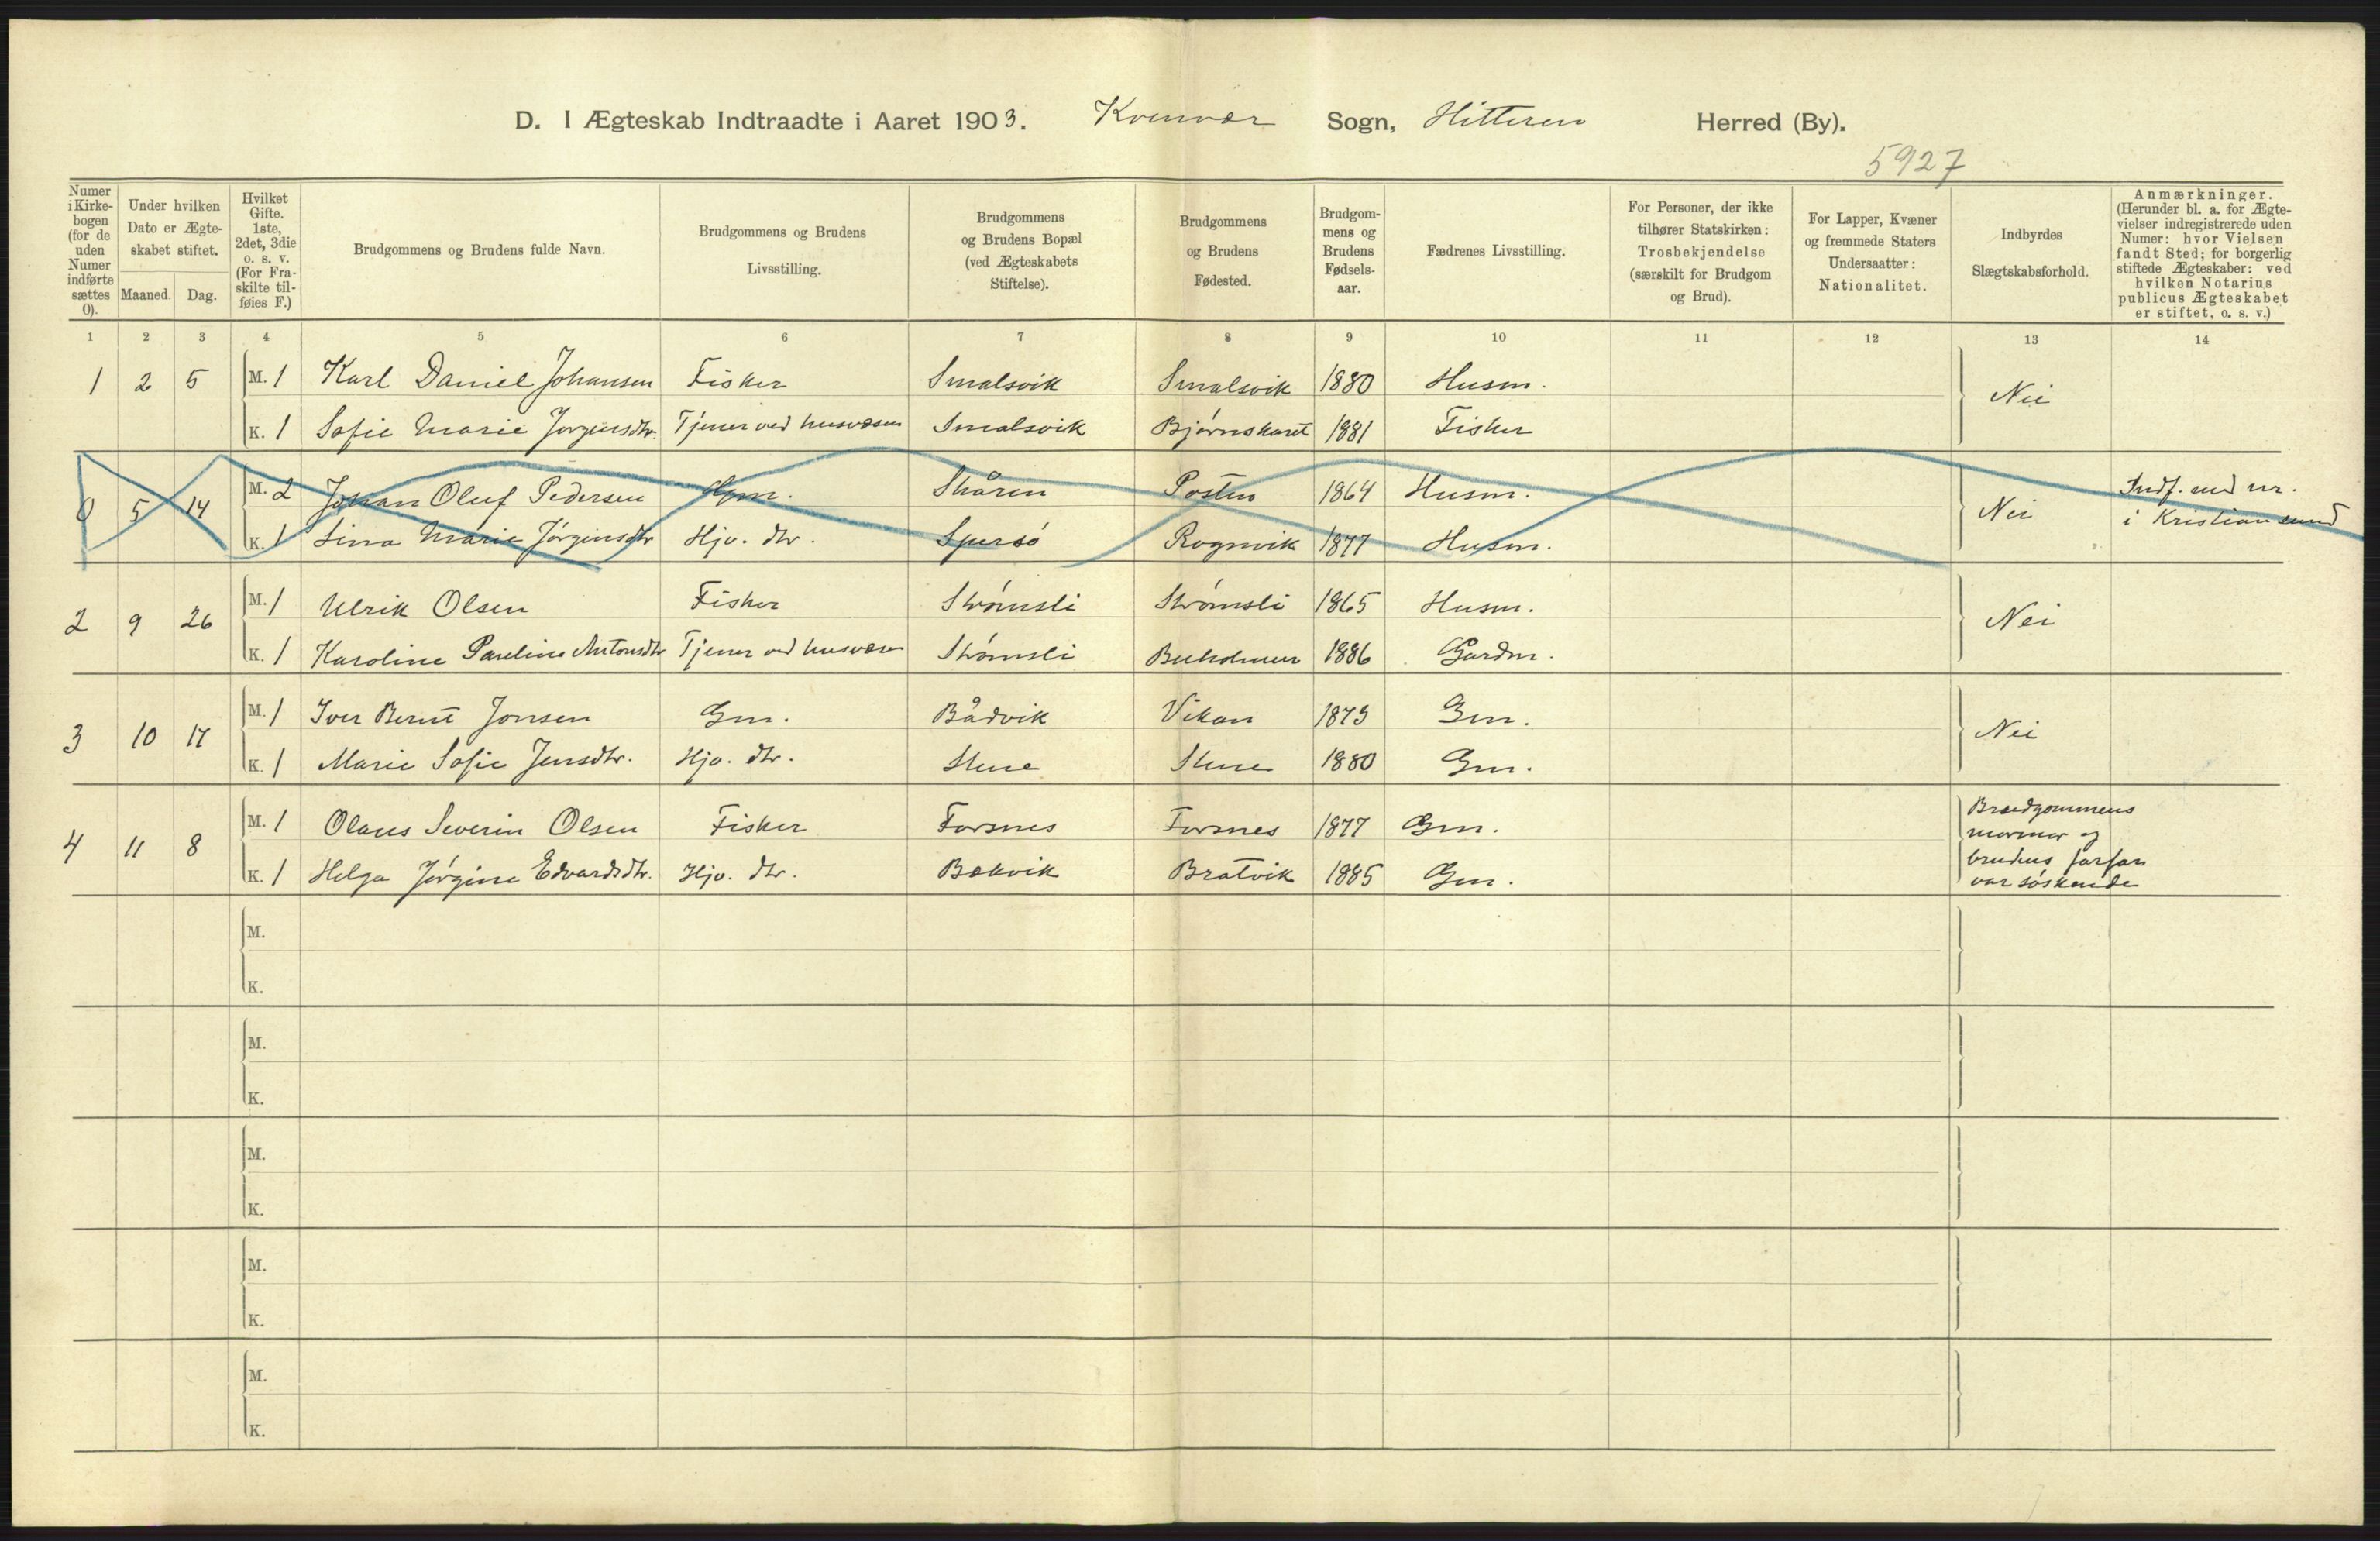 D. I Ægteskab Indtraadte i Aaret 1903. Kvenvær Sogn, Hitteren Herred (By).
5927
Numer i Kirkebogen (for de uden Numer indførte sættes 0).
Under hvilken Dato er Ægteskabet stiftet.
Maaned. Dag.
Hvilket Gifte. 1ste, 2det, 3die o. s. v. (For Fraskilte tilføies F.)
Brudgommens og Brudens fulde Navn.
Brudgommens og Brudens Livsstilling.
Brudgommens og Brudens Bopæl (ved Ægteskabets Stiftelse).
Brudgommens og Brudens Fødested.
Brudgommens og Brudens Fødselsaar.
Fædrenes Livsstilling.
For Personer, der ikke tilhører Statskirken: Trosbekjendelse (særskilt for Brudgom og Brud).
For Lapper, Kvæner og fremmede Staters Undersaatter: Nationalitet.
Indbyrdes Slægtskabsforhold.
Anmærkninger. (Herunder bl. a. for Ægtevielser indregistrerede uden Numer: hvor Vielsen fandt Sted; for borgerlig stiftede Ægteskaber: ved hvilken Notarius publicus Ægteskabet er stiftet, o. s. v.)
1 2 3 4 5 6 7 8 9 10 11 12 13 14
1 2 5 M. 1 Karl Daniel Johansen Fisker Smalsvik Smalsvik 1880 Husm. Nei
K. 1 Sofie Marie Jørginsdtr. Tjener ved husvæsen Smalsvik Bjørnskaret 1881 Fisker
0 5 14 M. 2 Johan Oluf Pedersen Gm. Skåren Posten 1864 Husm. Nei Indf. med nr.
i Kristiansund
K. 1 Lina Marie Jørginsdtr Hjv. dtr. Spersø Rognvik 1877 Husm.
2 9 26 M. 1 Ulrik Olsen Fisker Strømsli Strømsli 1865 Husm. Nei
K. 1 Karoline Pauline Antonsdtr Tjener ved husvæsen Strømsli Buholmen 1886 Gardm.
3 10 17 M. 1 Iver Bernt Jonsen Gm. Bådvik Vikan 1873 Gm. Nei
K. 1 Marie Sofie Jensdtr. Hjv. dtr. Stene Stene 1880 Gm.
4 11 8 M. 1 Olaus Severin Olsen Fisker Forsnes Forsnes 1877 Gm. Brudgommens
mormor og
K. 1 Helga Jørgine Edvardsdtr. Hjv. dtr. Bekvik Bratvik 1885 Gm. brudens farfar
var søskende
M.
K.
M.
K.
M.
K.
M.
K.
M.
K.